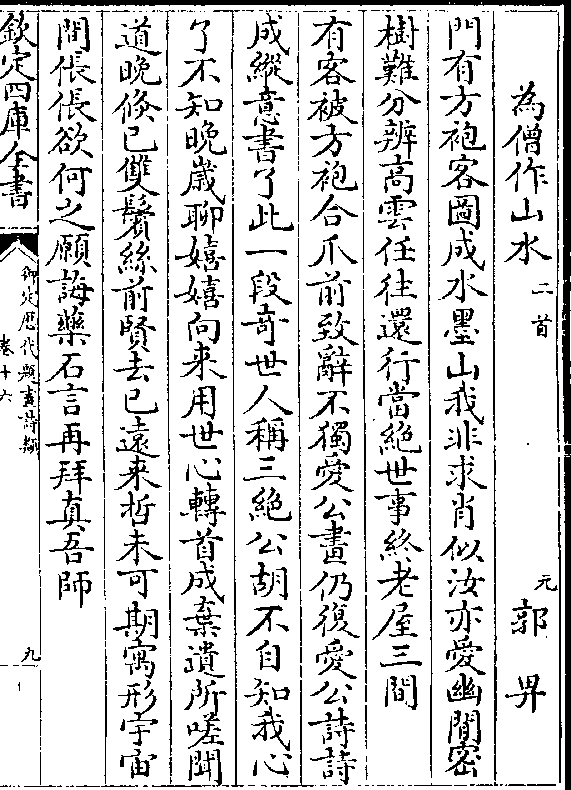 為僧作山水 二首 元 郭畀
門有方袍客圖成水墨山我非求肖似汝亦愛幽閒密
樹難分辨高雲任往還行當絶世事終老屋三間
有客被方袍合爪前致辭不獨愛公畫仍復愛公詩詩
成縱意書了此一段奇世人稱三絶公胡不自知我心
了不知晩歲聊嬉嬉向来用世心轉首成棄遺所嗟聞
道晚倐已雙鬢絲前賢去已遠来哲未可期寓形宇宙
間倀倀欲何之願誨藥石言再拜真吾師
欽定四庫全書
御定歴代題畫詩類
卷十六
九